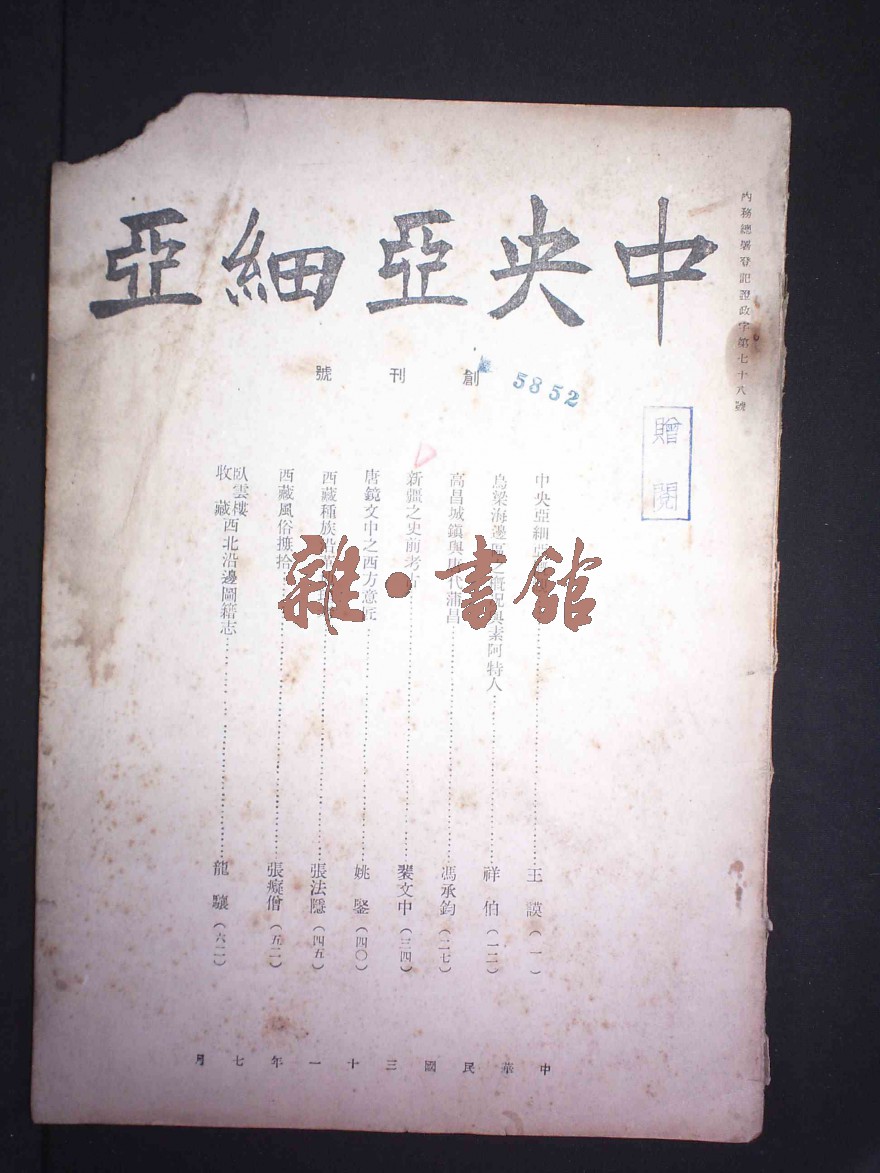 中央亞細亞
創刊號
5852
內務總署登記證政字第七十八號
贈閱
中央亞細亞……王謨（一）
烏梁海邊……之……與素阿特人……祥伯（一二）
高昌城鎮與唐代蒲昌……馮承鈞（二七）
新疆之史前考古……裴文中（三四）
唐鏡文中之西方意匠……姚鑒（四〇）
西藏種族沿革……張法隱（四五）
西藏風俗摭拾……張癡僧（五二）
臥雲樓收藏西北沿邊圖籍志……龍驤（六二）
中華民國三十一年七月
雜·書館